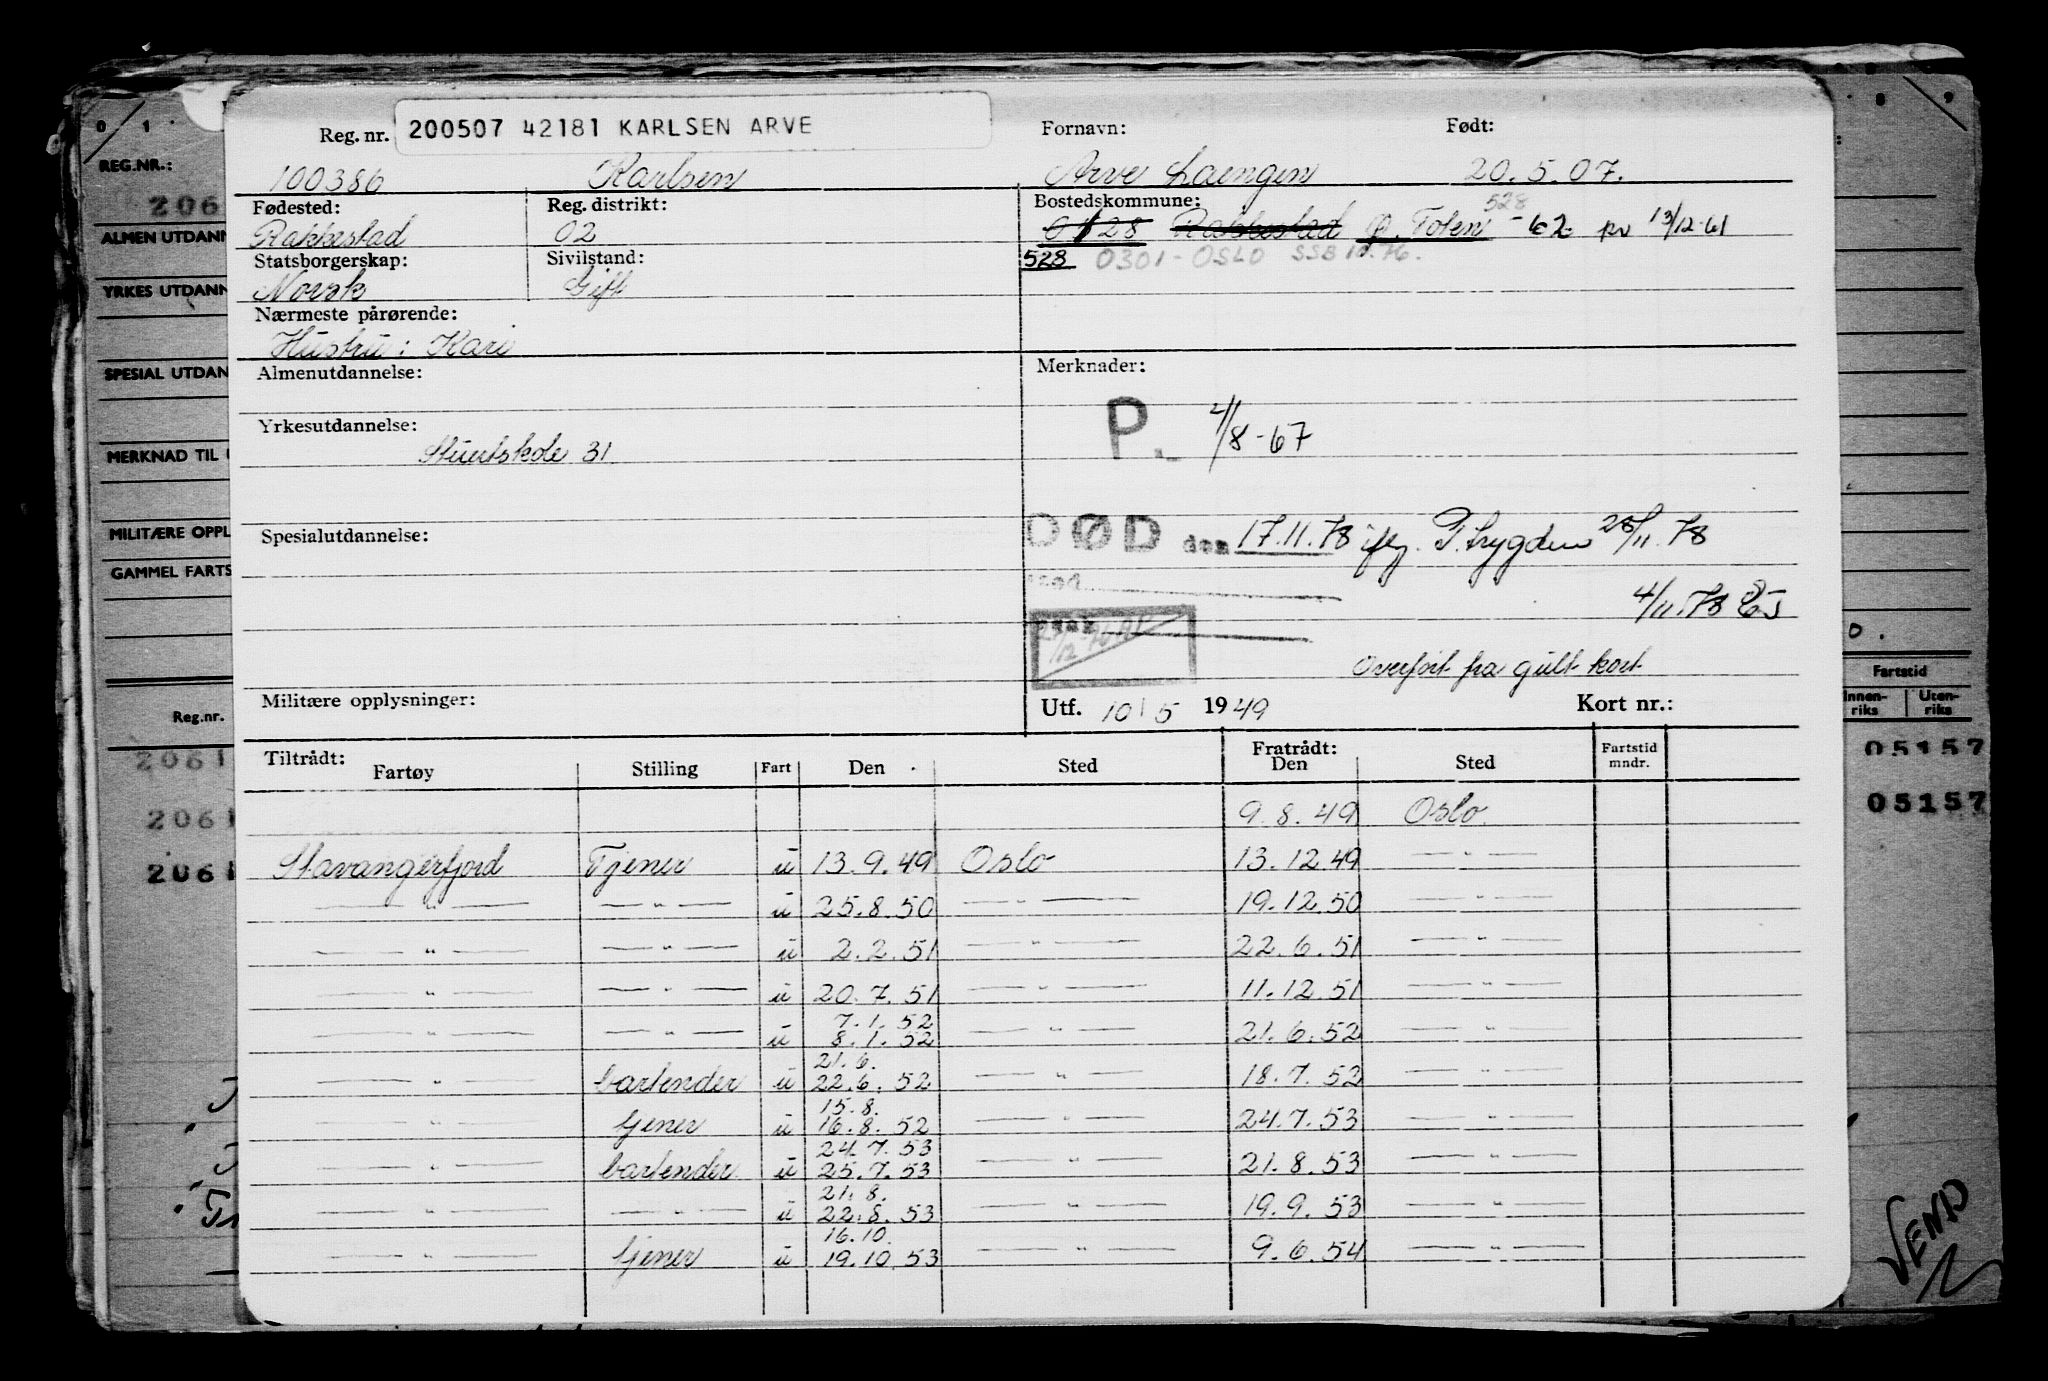 Reg. nr. 200507 42181 KARLSEN ARVE Fornavn: Født:
100386 Karlsen Arve Laengen 20.5.07.
Fødested: Reg. distrikt: Bostedskommune:
Rakkestad 02 0128 Rakkestad Ø. Toten 528 -62 13/12-61
Statsborgerskap: Sivilstand: 528 0301-OSLO SSB 10.76.
Norsk Gift
Nærmeste pårørende:
Hustru: Kari
Almenutdannelse: Merknader:
P. 4/8-67
Yrkesutdannelse:
Stuertskole 31
Spesialutdannelse: DØD den 17.11.78 iflg. P.trygden 28/11.78
4/11.78 EJ
Overført fra gult kort
Militære opplysninger: Utf. 10/5 1949 Kort nr.:
Tiltrådt: Fratrådt:
Fartøy Stilling Fart Den Sted Den Sted Fartstid mndr.
9.8.49 Oslo.
Stavangerfjord Tjener u 13.9.49 Oslo 13.12.49 — " —
— " — — " — u 25.8.50 — " — 19.12.50 — " —
— " — — " — u 2.2.51 — " — 22.6.51 — " —
— " — — " — u 20.7.51 — " — 11.12.51 — " —
7.1.52
— " — — " — u 8.1.52 — " — 21.6.52 — " —
21.6.
— " — bartender u 22.6.52 — " — 18.7.52 — " —
15.8.
— " — tjener u 16.8.52 — " — 24.7.53 — " —
24.7.53
— " — bartender u 25.7.53 — " — 21.8.53 — " —
21.8.
— " — — " — u 22.8.53 — " — 19.9.53 — " —
16.10.
— " — tjener u 19.10.53 — " — 9.6.54 — " —
0 1
REG.NR.:
206
ALMEN UTDANN
YRKES UTDANN
SPESIAL UTDAN
MERKNAD TIL
MILITÆRE OPPL
GAMMEL FARTS
Reg.nr.
2061
2061
2061
8 9
Fartstid
Innen-riks Uten-riks
05157
05157
VEND